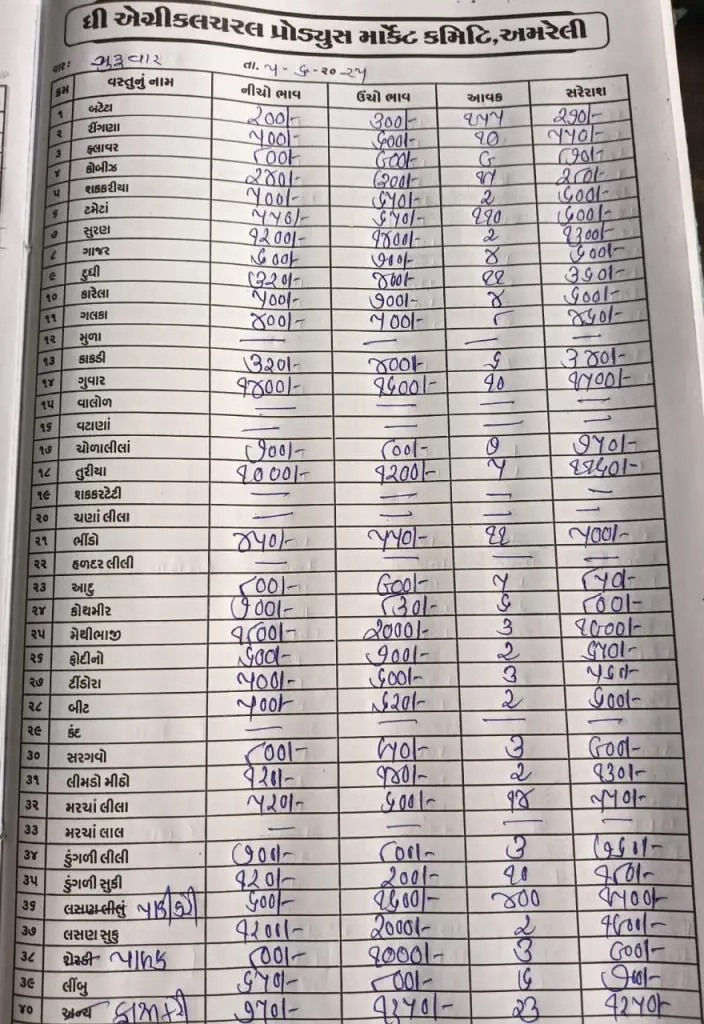 ધી એગ્રીકલચરલ પ્રોડ્યુસ માર્કેટ કમિટિ,અમરેલી
વાર: ગુરૂવાર તા. ૫-૬-૨૦૨૫
ક્રમ વસ્તુનું નામ નીચો ભાવ ઉંચો ભાવ આવક સરેરાશ
૧ બટેટા ૨૦૦/- ૩૦૦/- ૧૫૫ ૨૭૦/-
૨ રીંગણા ૫૦૦/- ૬૦૦/- ૧૦ ૫૫૦/-
૩ ફ્લાવર ૮૦૦/- ૯૦૦/- ૯ ૮૭૦/-
૪ કોબીઝ ૨૪૦/- ૩૦૦/- ૧૫ ૨૮૦/-
૫ શક્કરીયા ૫૦૦/- ૬૫૦/- ૨ ૬૦૦/-
૬ ટમેટાં ૫૫૦/- ૬૫૦/- ૧૧૦ ૬૦૦/-
૭ સુરણ ૧૨૦૦/- ૧૪૦૦/- ૨ ૧૩૦૦/-
૮ ગાજર ૬૦૦/- ૭૦૦/- ૪ ૬૦૦/-
૯ દુધી ૩૨૦/- ૪૦૦/- ૧૧ ૩૬૦/-
૧૦ કારેલા ૫૦૦/- ૭૦૦/- ૪ ૬૦૦/-
૧૧ ગલકા ૪૦૦/- ૫૦૦/- ૮ ૪૬૦/-
૧૨ મુળા — — — —
૧૩ કાકડી ૩૨૦/- ૪૦૦/- ૬ ૩૪૦/-
૧૪ ગુવાર ૧૪૦૦/- ૧૬૦૦/- ૧૦ ૧૫૦૦/-
૧૫ વાલોળ — — — —
૧૬ વટાણાં — — — —
૧૭ ચોળાલીલાં ૭૦૦/- ૮૦૦/- ૭ ૭૫૦/-
૧૮ તુરીયા ૧૦૦૦/- ૧૨૦૦/- ૫ ૧૧૬૦/-
૧૯ શક્કરટેટી — — — —
૨૦ ચણાં લીલા — — — —
૨૧ ભીંડો ૪૫૦/- ૫૫૦/- ૧૧ ૫૦૦/-
૨૨ હળદર લીલી — — — —
૨૩ આદુ ૮૦૦/- ૯૦૦/- ૫ ૮૫૦/-
૨૪ કોથમીર ૭૦૦/- ૮૩૦/- ૬ ૮૦૦/-
૨૫ મેથીભાજી ૧૮૦૦/- ૨૦૦૦/- ૩ ૧૯૦૦/-
૨૬ ફોટીનો ૬૦૦/- ૭૦૦/- ૨ ૬૫૦/-
૨૭ ટીંડોરા ૫૦૦/- ૬૦૦/- ૩ ૫૬૦/-
૨૮ બીટ ૫૦૦/- ૬૨૦/- ૨ ૬૦૦/-
૨૯ કંદ — — — —
૩૦ સરગવો ૮૦૦/- ૯૫૦/- ૩ ૯૦૦/-
૩૧ લીમડો મીઠો ૧૨૦/- ૧૪૦/- ૨ ૧૩૦/-
૩૨ મરચાં લીલા ૫૨૦/- ૬૦૦/- ૧૪ ૫૫૦/-
૩૩ મરચાં લાલ — — — —
૩૪ ડુંગળી લીલી ૭૦૦/- ૮૦૦/- ૩ ૭૬૦/-
૩૫ ડુંગળી સુકી ૧૨૦/- ૨૦૦/- ૧૦ ૧૮૦/-
૩૬ લસણ લીલું ૬૦૦/- ૧૬૦૦/- ૪૦૦ ૧૫૦૦/-
૩૭ લસણ સુકુ ૧૨૦૦/- ૨૦૦૦/- ૨ ૧૬૦૦/-
૩૮ પાલક ૮૦૦/- ૧૦૦૦/- ૩ ૯૦૦/-
૩૯ લીંબુ ૬૫૦/- ૮૦૦/- ૬ ૭૦૦/-
૪૦ અન્ય ૭૫૦/- ૧૨૫૦/- ૨૩ ૧૨૫૦/-